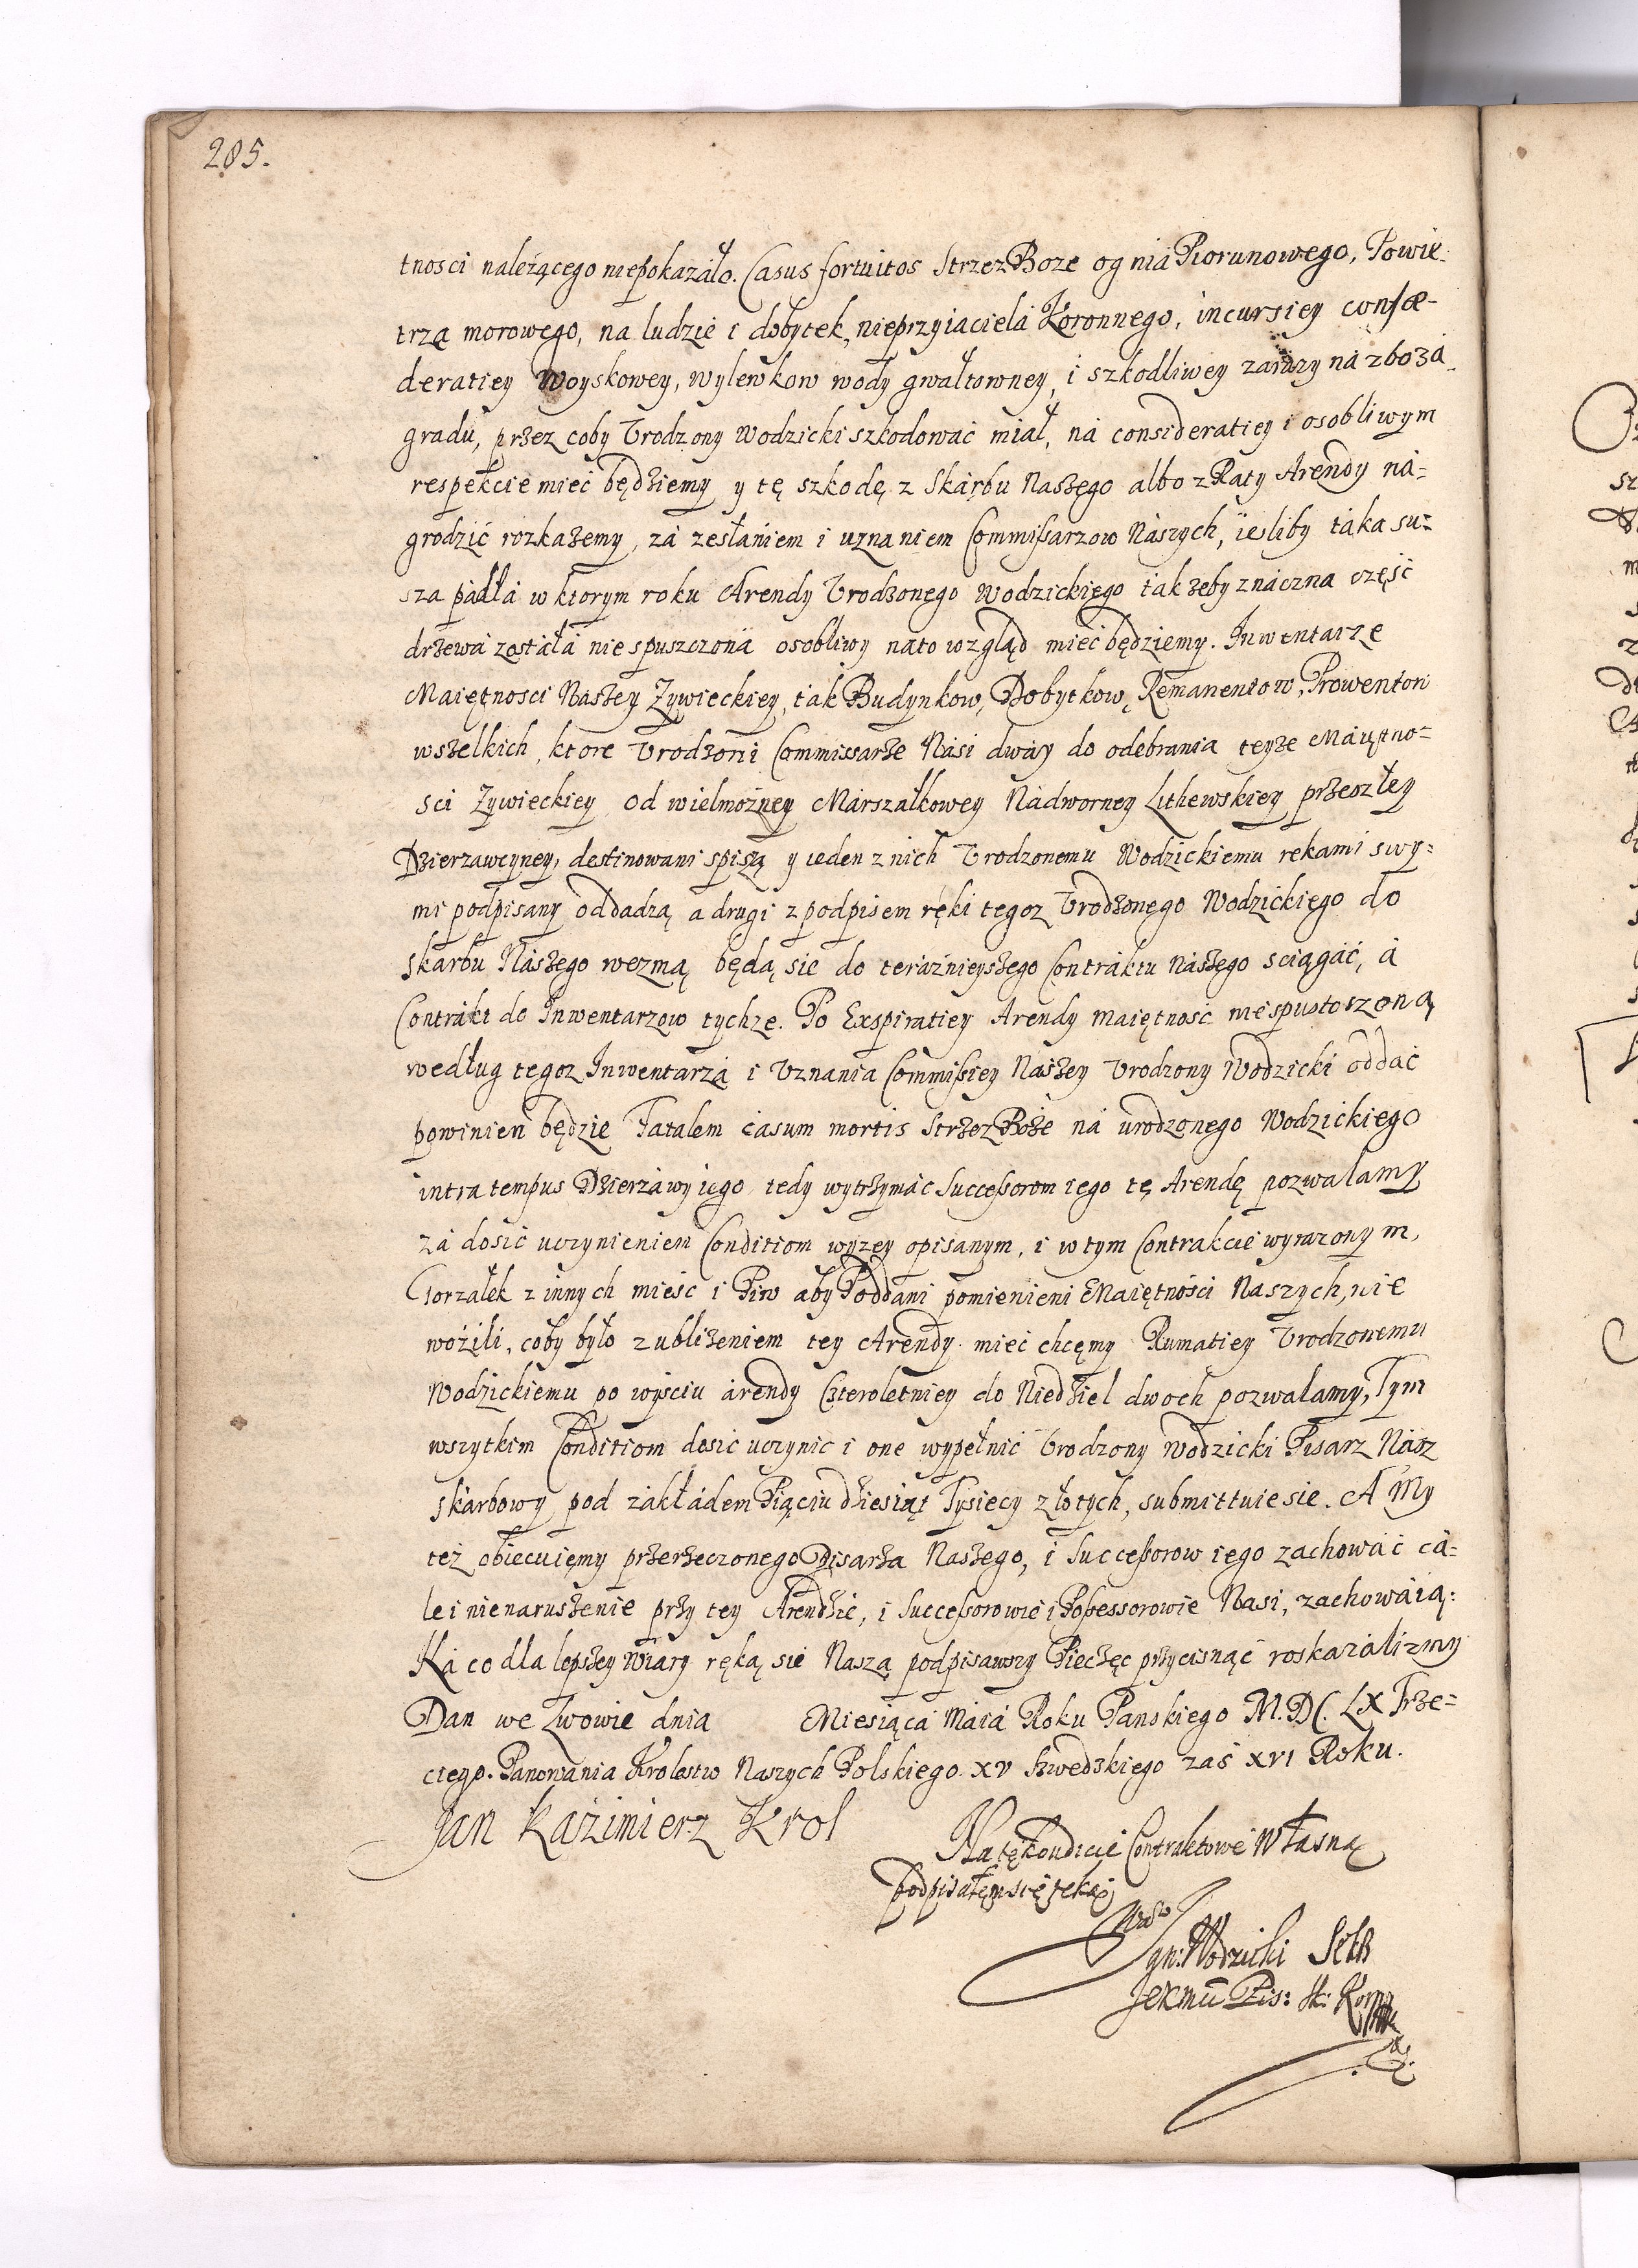 205.
tnosci należącego niepokazało. Casus fortuitos Strzez Boze ognia Piorunowego, Powie-
trza morowego, na ludzie i dobytek, nieprzyiaciela Koronnego, incursiey confæ-
deratiey Woyskowey, wylewkow wody gwałtowney, i szkodliwey zarazy na zboża
gradu, przez coby Vrodzony Wodzicki szkodować miał, na consideratiey i osobliwym
respekcie mieć będziemy y tę szkodę z Skarbu Naszego albo z Raty Arendy na=
grodzić rozkażemy, za zesłaniem i uznaniem Commissarzow Naszych, iesliby taka su=
sza padła w ktorym roku Arendy Vrodzonego Wodzickiego tak żeby znaczna część
drzewa została nie spuszczona osobliwy nato wzgląd mieć będziemy. Inwentarze
Maiętnosci Naszey Zywieckiey, tak Budynkow, Dobytkow, Remanentow, Prowentow
wszelkich, ktore Vrodzoni Commissarze Nasi dway do odebrania teyże Maiętno=
sci Zywieckiey od wielmożney Marszałkowey Nadworney Lithewskiey przeszłey
Dzierzawcyney, destinowani spiszą y ieden z nich Vrodzonemu Wodzickiemu rekami swy=
mi podpisany oddadzą, a drugi z podpisem ręki tegoz Vrodzonego Wodzickiego do
skarbu Naszego wezmą, będą sie do teraznieyszego Contraktu Naszego sciągać, a
Contrakt do Inwentarzow tychze. Po Exspiratiey Arendy maiętnosc niespustoszoną
według tegoz Inwentarza i Vznania Commissiey Naszey Vrodzony Wodzicki oddać
powinien będzie Fatalem casum mortis Strzez Boże na urodzonego Wodzickiego
intra tempus Dzierzawy iego, tedy wytrzymac Successorom iego tę Arendę pozwalamy
za dosić uczynieniem Conditiom wyzey opisanym, i w tym Contrakcie wyrazonym,
Gorzałek z innych mieść i Piw aby Poddani pomienieni Maiętności Naszych, nie
wozili, coby było z ubliżeniem tey Arendy mieć chcemy Rumatiey Vrodzonemu
Wodzickiemu po wyiściu arendy Czteroletniey do Niedziel dwoch pozwalamy, Tym
wszytkim Conditiom dosic uczynic i one wypełnić Vrodzony Wodzicki Pisarz Nasz
skarbowy pod zakładem Piąciu dziesiąt Tysięcy złotych, submittuie sie. A My
też obiecuiemy przerzeczonego Pisarza Naszego, i Successorow iego zachować ca=
le i nienaruszenie przy tey Arendzie, i Successorowie i Possessorowie Nasi, zachowaią:
Na co dla lepszey wiary ręką sie Naszą podpisawszy Pieczęc przycisnąć roskazalismy
Dan we Lwowie dnia Miesiąca Maia Roku Panskiego M.DC. LX Trze=
ciego. Panowania Krolestw Naszych Polskiego XV Szwedskiego zaś XVI Roku.
Jan Kazimierz Krol
Na tę Kondicie Contraktowe Własną
podpisałem się ręką
Wodzicki